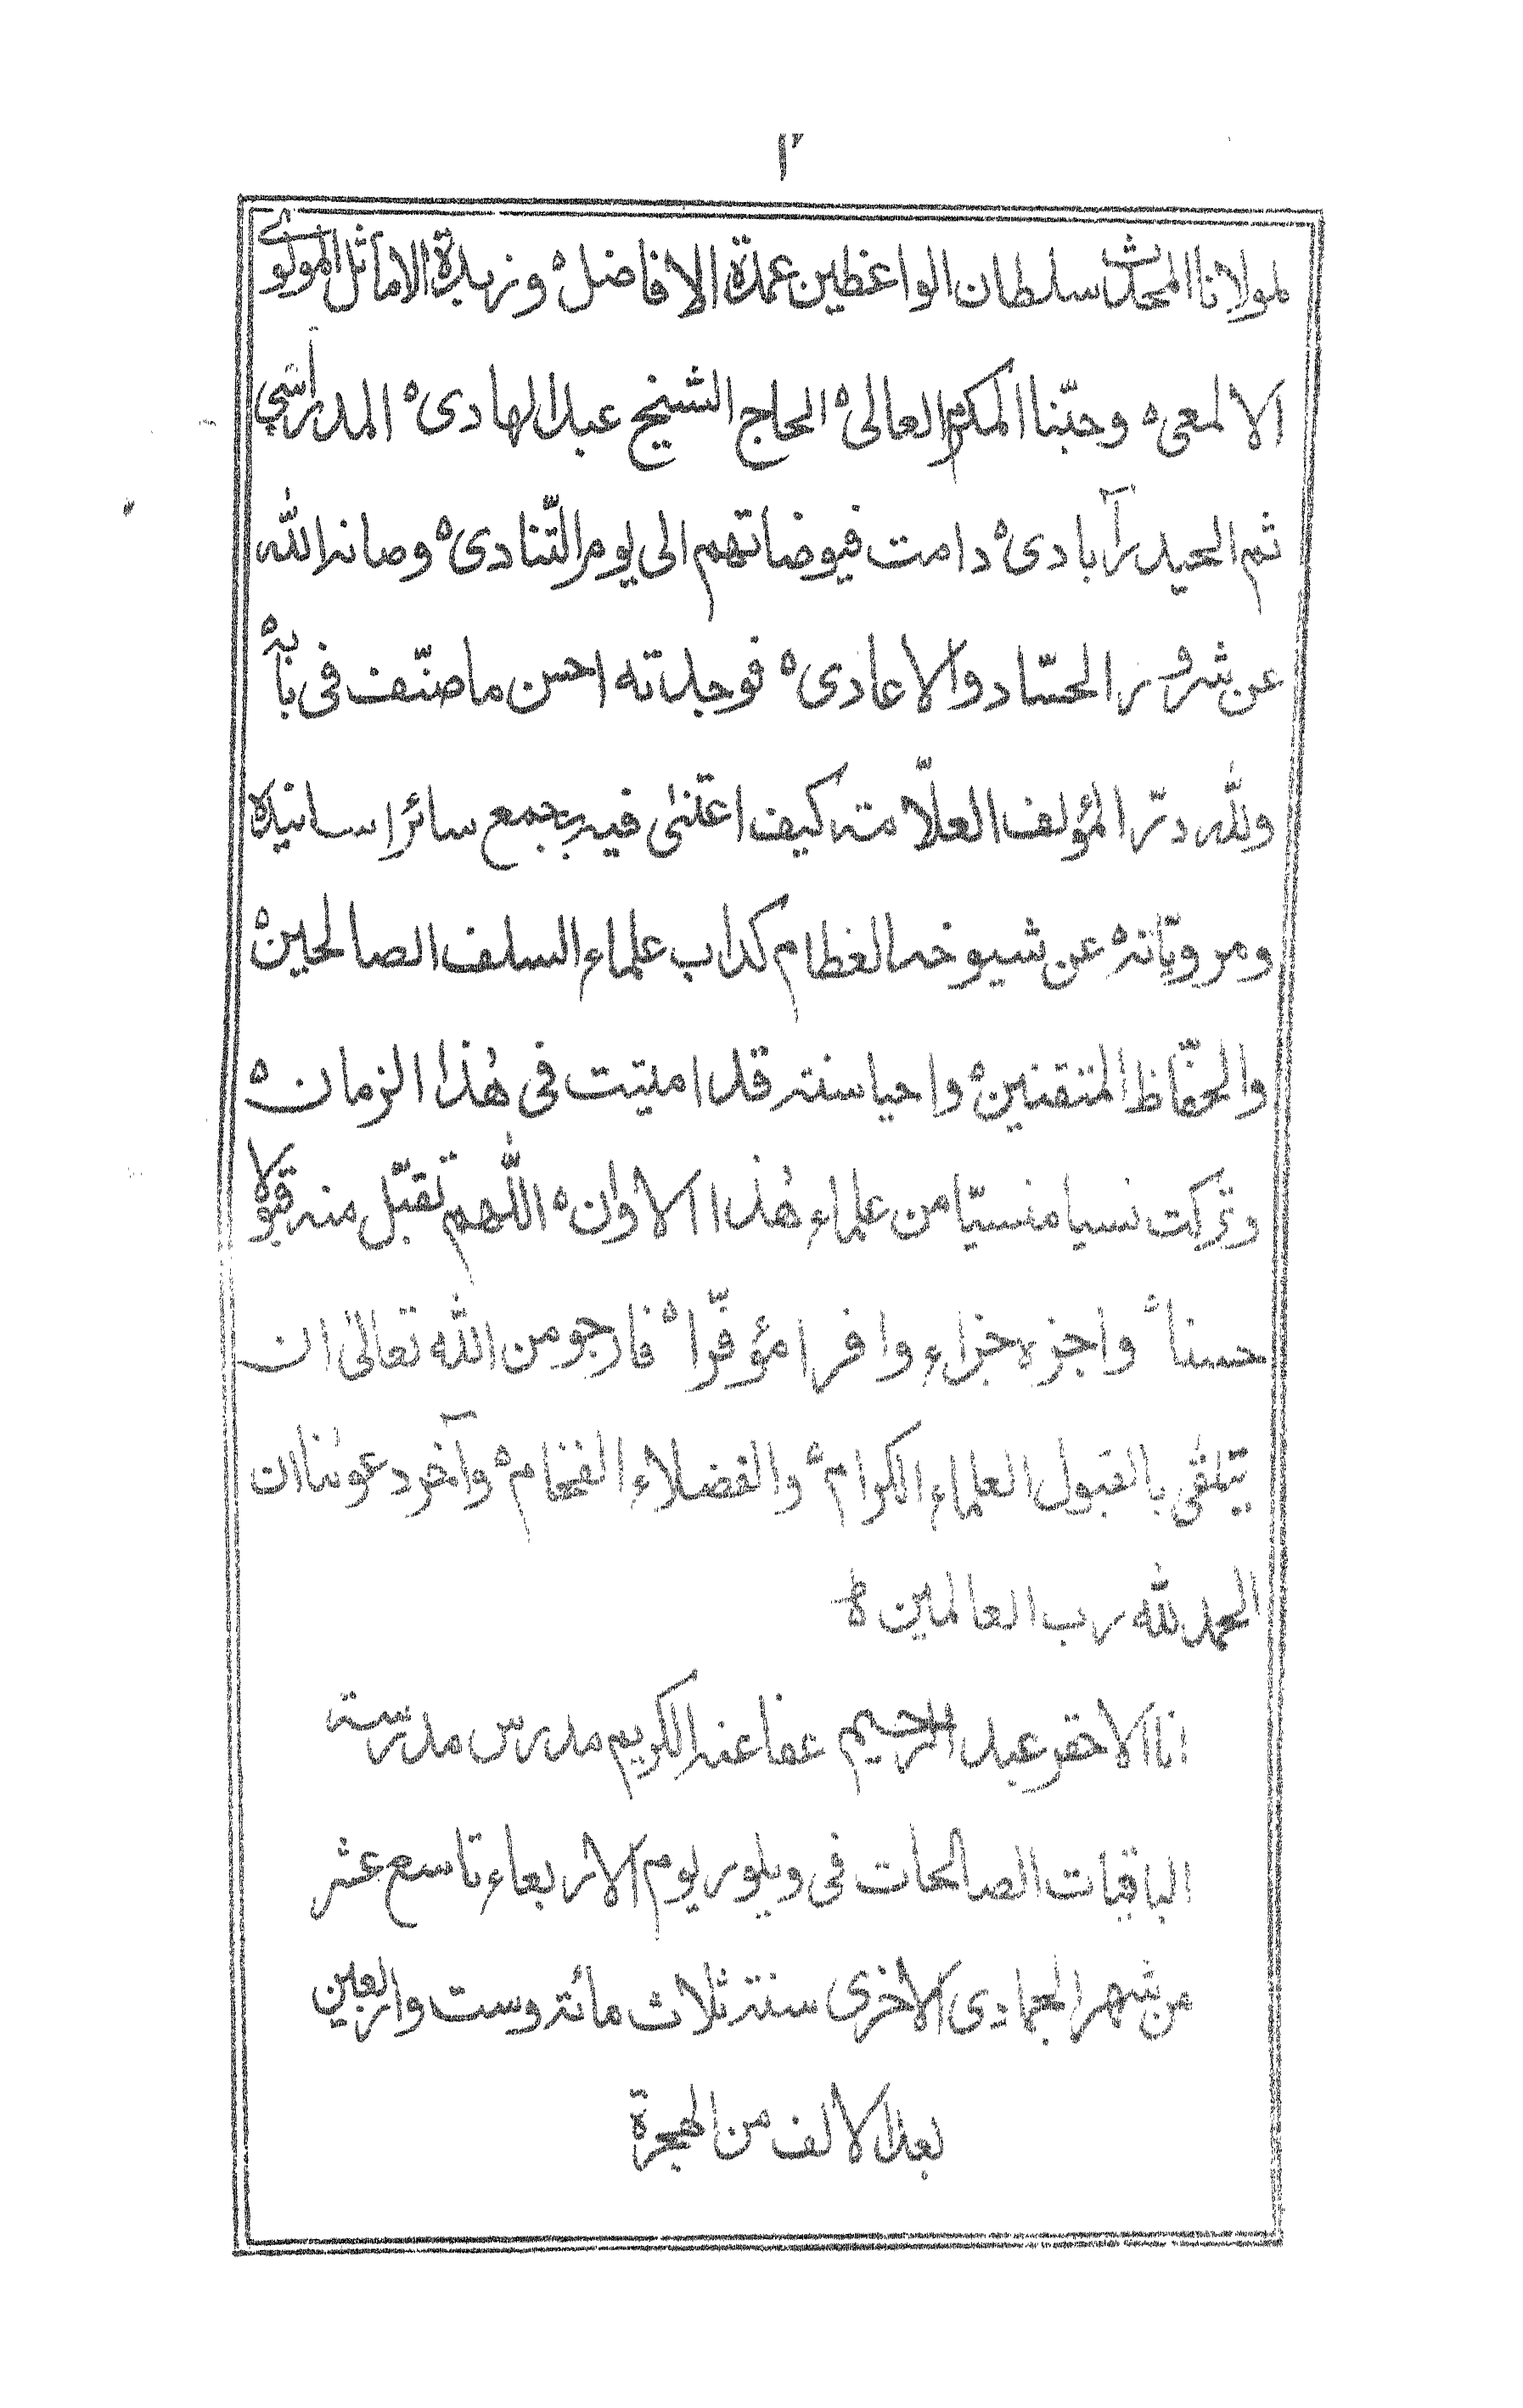 ٢
لمولانا المحدث سلطان الواعظين عمدة الافاضل ه وزبدة الاماثل المولوي
الالمعي ه وحبّنا المكرم العالى ه الحاج الشيخ عبد الهادى ه المدراسي
ثم الحيدرآبادى ه دامت فيوضاتهم الى يوم التّنادى ه وصانه الله
عن شرور الحسّاد والاعادى ه فوجدته احسن ما صنّف فى بابه ه
ولله درّ المؤلف العلّامة كيف اعتنى فيه بجمع سائر اسانيده
ومرويّاته ه عن شيوخه العظام كداب علماء السلف الصالحين ه
والحفّاظ المتقنين ه واحيا سنة قد اميتت فى هٰذا الزمان ه
وتركت نسيا منسيّا من علماء هٰذا الاوان ه اللّٰهم تقبّل منه قبولا
حسناً واجزه جزاء وافرا مؤفّرا ه فارجو من الله تعالىٰ ان
يتلقى بالقبول العلماء الكرام ه والفضلاء الفخام ه وآخر دعوٰنا ان
الحمد لله رب العالمين ه
انا الاحقر عبد الرحيم عفا عنه الكريم مدرس مدرسة
الباقيات الصالحات فى ويلور يوم الاربعاء تاسع عشر
من شهر الجمادى الاخرى سنة ثلاث مائة وست واربعين
بعد الالف من الهجرة